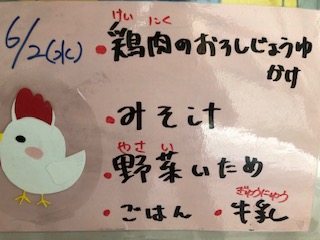 6/2(水)
けい にく
・鶏肉のおろしじょうゆ
かけ
・みそ汁
やさい
・野菜いため
ぎゅうにゅう
・ごはん ・牛乳